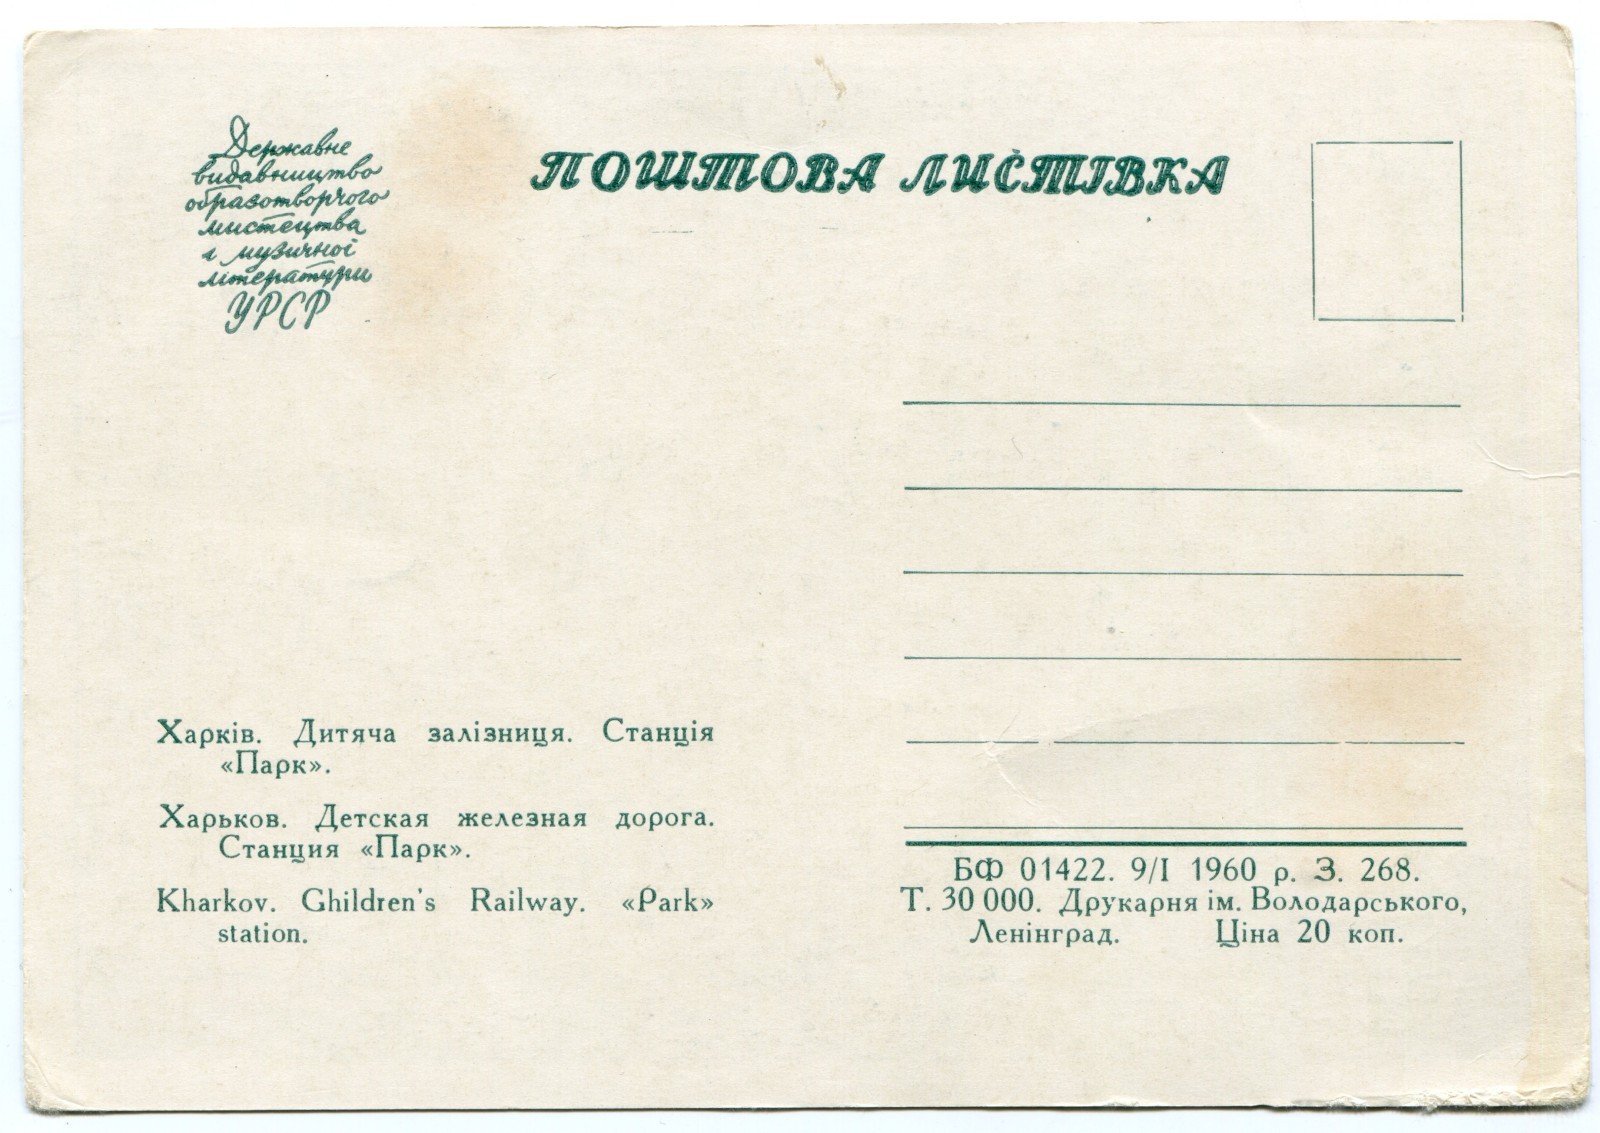 Державне
видавництво
образотворчого
мистецтва
і музичної
літератури
УРСР
ПОШТОВА ЛИСТІВКА
Харків. Дитяча залізниця. Станція
«Парк».
Харьков. Детская железная дорога.
Станция «Парк».
Kharkov. Ghildren's Railway. «Park»
station.
БФ 01422. 9/I 1960 р. З. 268.
Т. 30 000. Друкарня ім. Володарського,
Ленінград. Ціна 20 коп.